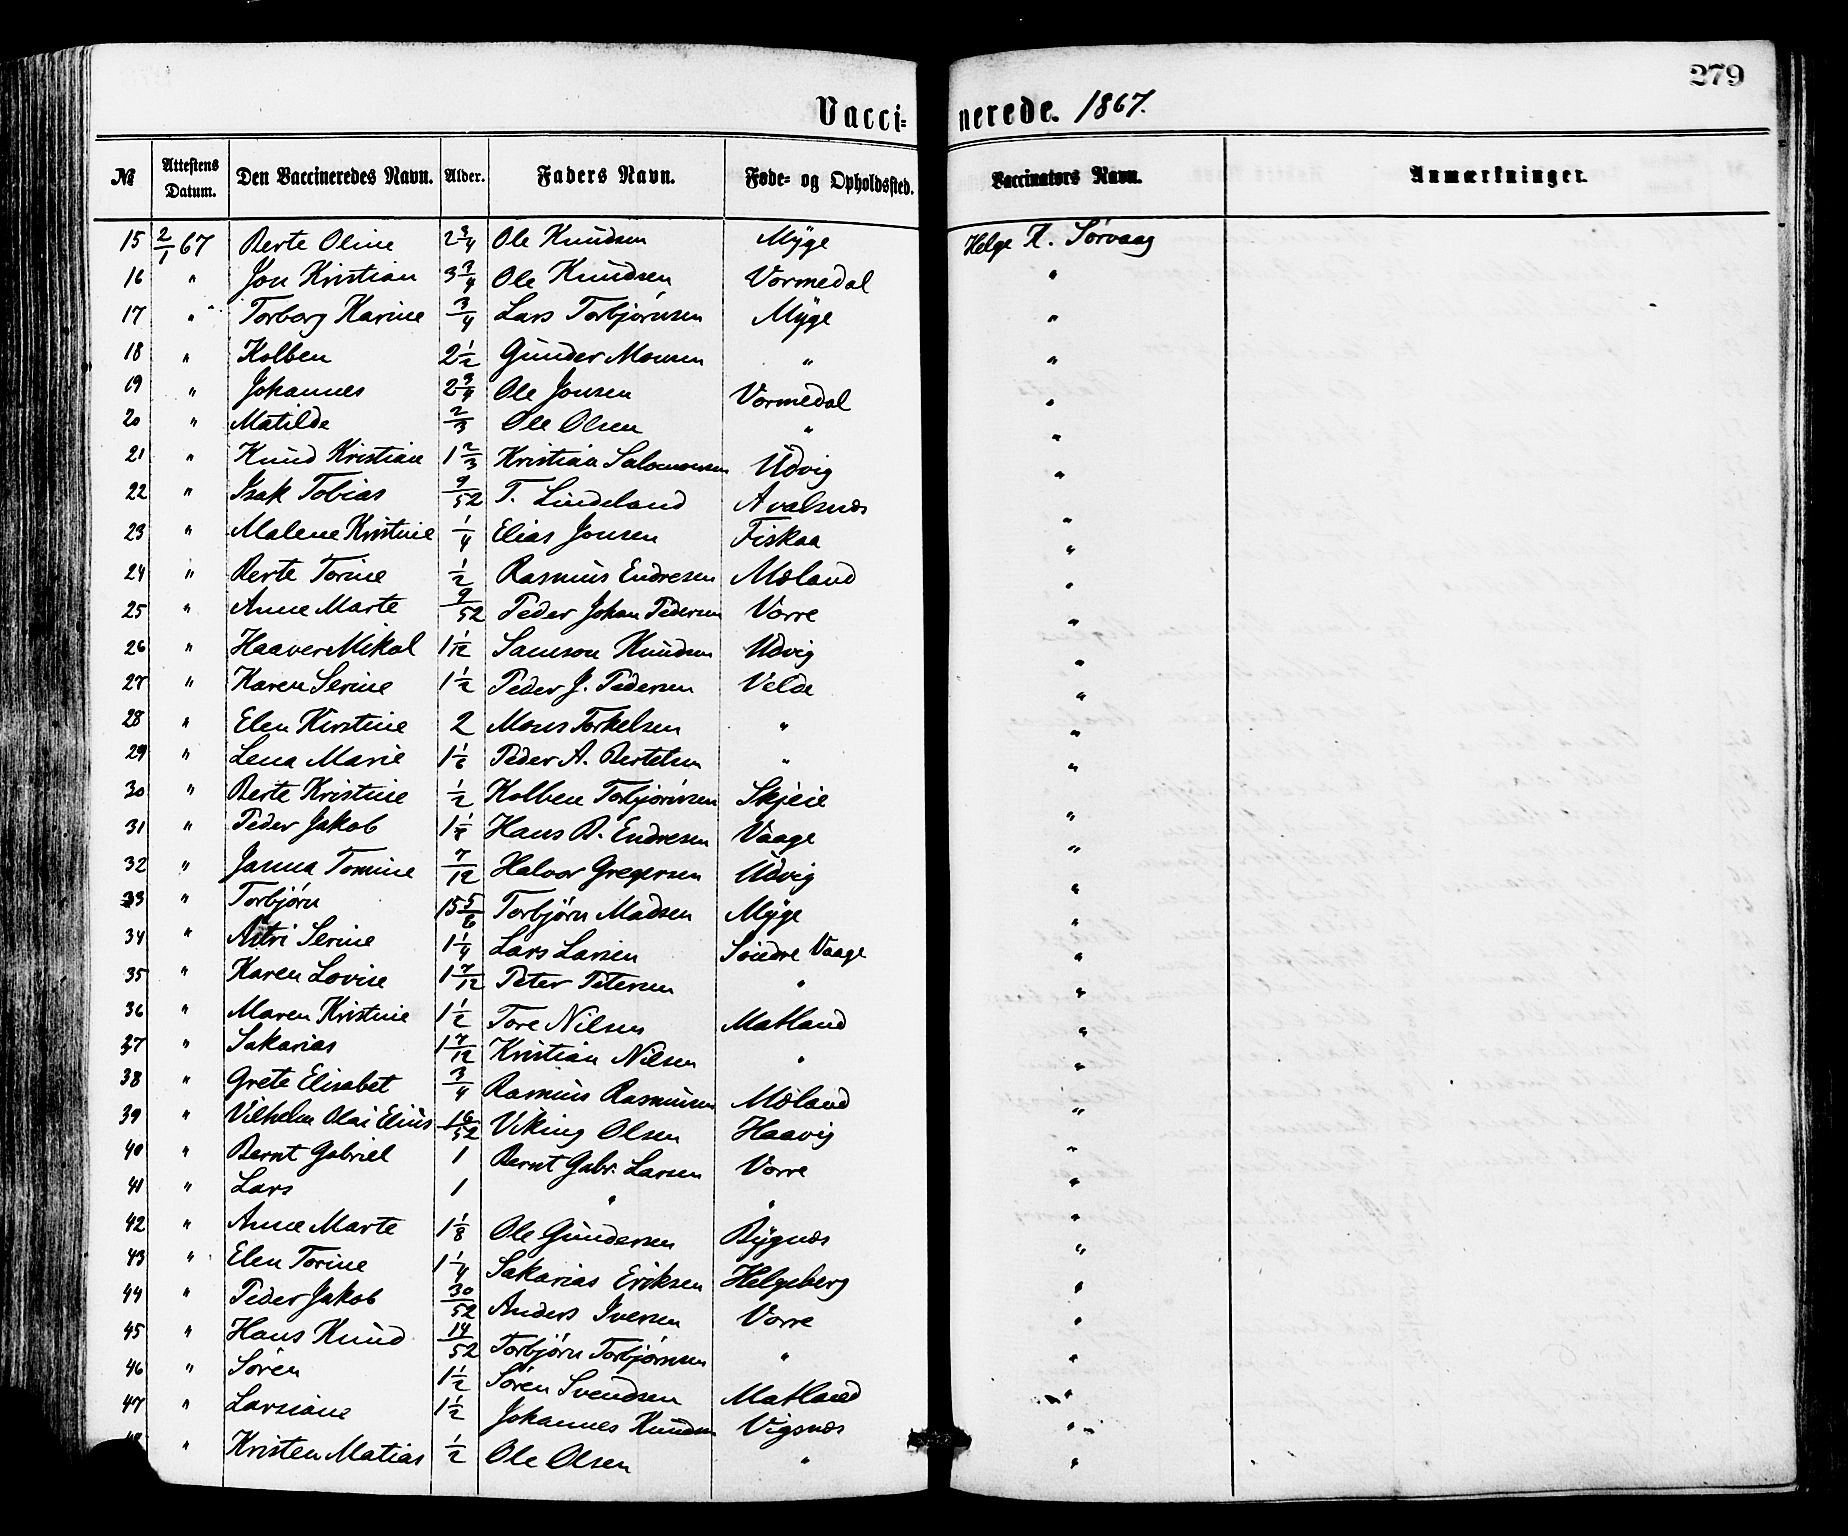 279
Vacci= nerede. 1867.
№ Attestens Datum. Den Vaccineredes Navn. Alder. Faders Navn. Føde- og Opholdssted. Vaccinators Navn. Anmærkninger.
15 2/1 67 Berte Oline 2 3/4 Ole Knudsen Myge Helge K. Sørvaag
16 " Jon Kristian 3 3/4 Ole Knudsen Vormedal "
17 " Torborg Karine 3/4 Lars Torbjørnsen Myge "
18 " Kolben 2 1/2 Gunder Monsen " "
19 " Johannes 2 3/4 Ole Jonsen Vormedal "
20 " Matilde 2/3 Ole Olsen " "
21 " Knud Kristian 1 2/3 Kristian Salomonsen Udvig "
22 " Isak Tobias 9/52 T. Lindeland Avalsnæs "
23 " Malene Kristine 1/4 Elias Jonsen Fiskaa "
24 " Berte Torine 1/2 Rasmus Endresen Mæland "
25 " Anne Marte 9/52 Peder Johan Pedersen Vorre "
26 " Haaver Mikal 1 1/12 Samson Knudsen Udvig "
27 " Karen Serine 1 1/2 Peder J. Pedersen Velde "
28 " Elen Kirstine 2 Mons Torkelsen " "
29 " Lena Marie 1 1/6 Peder A. Bertelsen " "
30 " Berte Kristine 1/2 Kolben Torbjørnsen Skjeie "
31 " Peder Jakob 1 1/8 Hans B. Endresen Vaage "
32 " Janna Tomine 7/12 Halvor Gregersen Udvig "
33 " Torbjørn 15 5/6 Torbjørn Madsen Myge "
34 " Astri Serine 1 1/4 Lars Larsen Søndre Vaage "
35 " Karen Lovise 1 7/12 Peter Petersen " "
36 " Maren Kristine 1 1/2 Tore Nilsen Matland "
37 " Sakarias 1 7/12 Kristian Nilsen " "
38 " Grete Elisabet 3/4 Rasmus Rasmusen Mæland "
39 " Vilhelm Olai Elius 16/52 Viking Olsen Haavig "
40 " Bernt Gabriel 1 Bernt Gabr. Larsen Vorre "
41 " Lars 1 " " "
42 " Anne Marte 1 1/8 Ole Gundersen Bygnæs "
43 " Elen Torine 1 1/4 Sakarias Eriksen Helgeberg "
44 " Peder Jakob 30/52 Anders Iversen Vorre "
45 " Hans Knud 14/52 Torbjørn Torbjørnsen " "
46 " Søren 1 1/2 Søren Svendsen Matland "
47 " Larsiane 1 1/2 Johannes Knudsen Vigsnæs "
" Kristen Matias 1/2 Ole Olsen " "